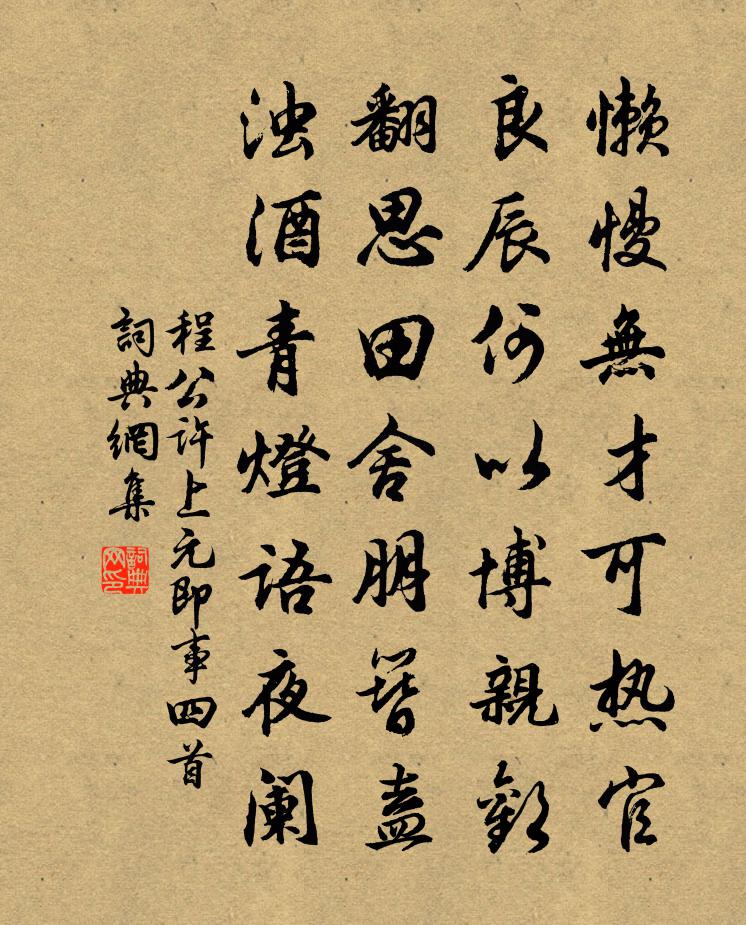 懒慢無才可热官
良辰何以博親歡
翻思田舍朋簪盍
浊酒青燈語夜阑
程公許上元即事四首
詞典網集
詞典网印